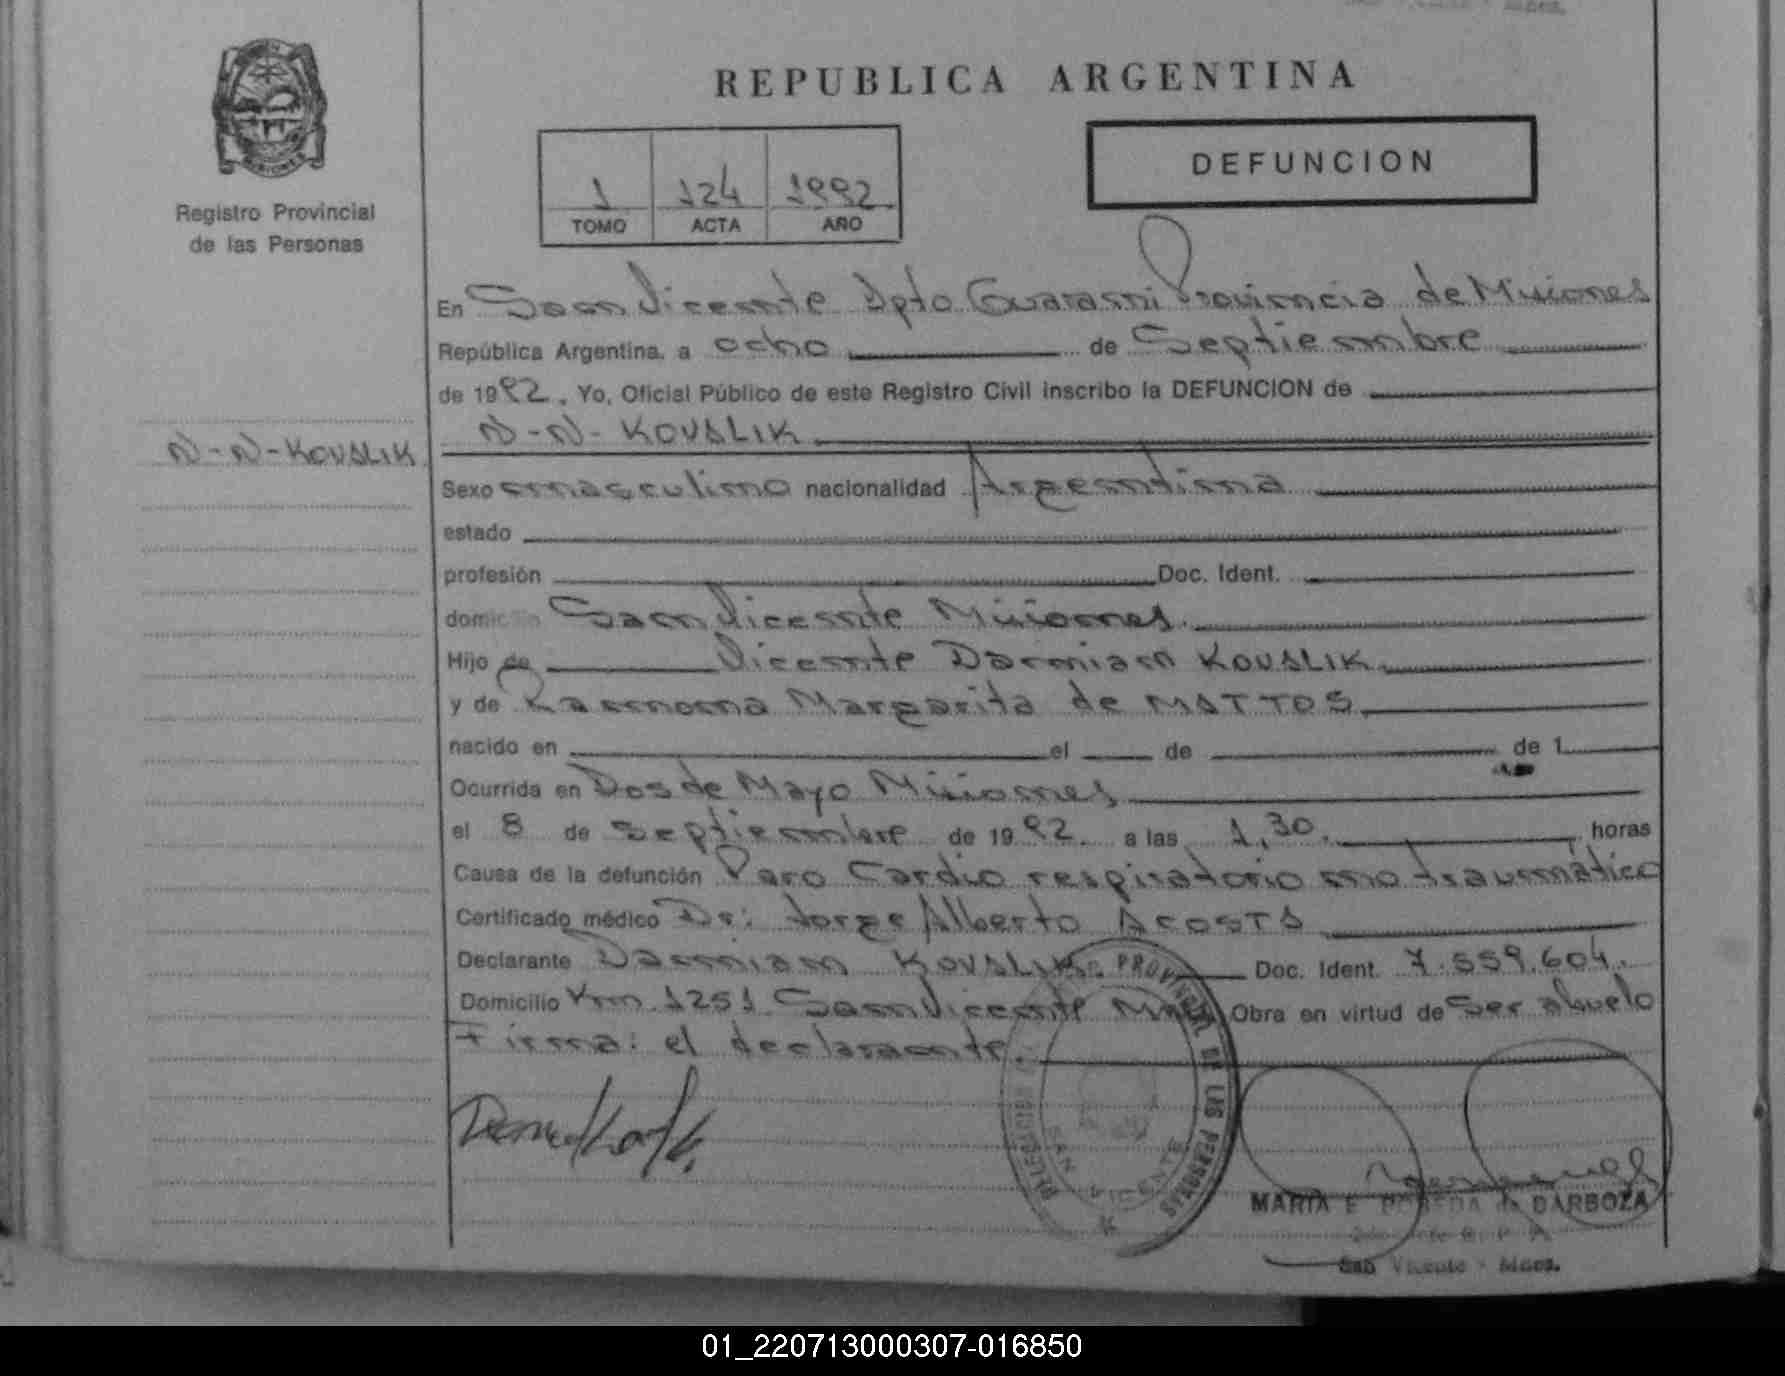 REPUBLICA ARGENTINA
DEFUNCION
1 124 1992
TOMO ACTA AÑO
MISIONES
Registro Provincial
de las Personas
En San Vicente Dpto Guarani Provincia de Misiones
República Argentina, a ocho de Septiembre
de 1992. Yo, Oficial Público de este Registro Civil inscribo la DEFUNCION de
N-N-KOVALIK
N-N-KOVALIK.
Sexo masculino nacionalidad Argentina
estado
profesión Doc. Ident.
domicilio San Vicente Misiones.
Hijo de Vicente Damian KOVALIK.
y de Ramona Margarita de MATTOS.
nacido en el de de 1
Ocurrida en Dos de Mayo Misiones
el 8 de Septiembre de 1992. a las 1,30. horas
Causa de la defunción Paro Cardio respiratorio no traumático
Certificado médico Dr: Jorge Alberto ACOSTA
Declarante Damian KOVALIK. Doc. Ident. 7.559.604.
Domicilio Km. 1251 San Vicente Mnes Obra en virtud de ser abuelo
Firma: el declarante.
PROVINCIAL DE LAS PERSONAS
SAN VICENTE
MARIA E. de BARBOZA
San Vicente - Mnes.
01_220713000307-016850